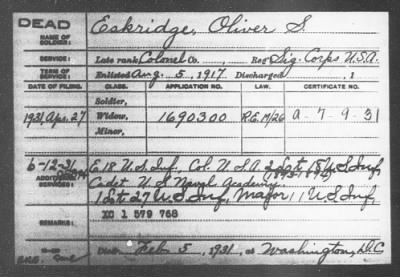 DEAD
NAME OF SOLDIER: Eskridge, Oliver S.
SERVICE: Late rank Colonel Co. , Reg Sig. Corps U.S.A.
TERM OF SERVICE: Enlisted Aug. 5, 1917. Discharged , 1
DATE OF FILING. CLASS. APPLICATION NO. LAW. CERTIFICATE NO.
Soldier,
1931, Apr. 27 Widow, 1690300 R.E. M/26 a-7-9-31
Minor,
6-12-31 E 18 U.S. Inf, Col. U.S.A 2 Sgt 18 U.S Inf,
ADDITIONAL SERVICES: Cadet U.S Naval Academy
1 Lt 27 U.S Inf, Major 11 U S Inf,
REMARKS: XC 1 579 768
Died Feb 5, 1931, at Washington, D.C